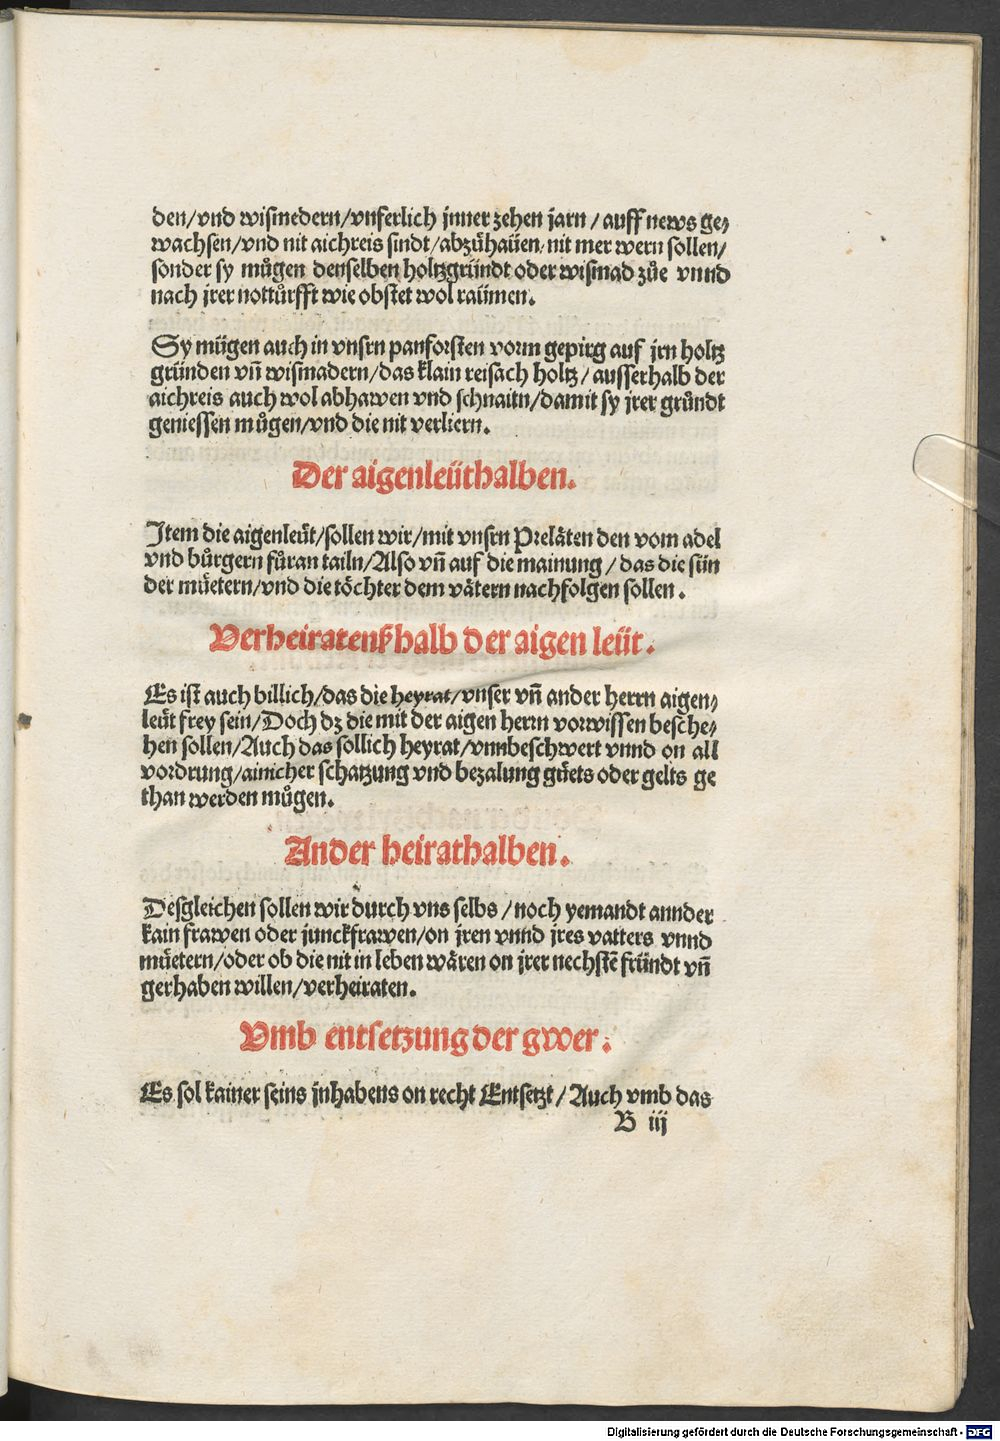 den/vnd wismedern/vnferlich jnner zehen jarn / auff news ge⸗
wachsen/vnd nit aichreis sindt/abzůhaüen/nit mer wern sollen/
sonder sy můgen denselben holtzgründt oder wismad zůe vnnd
nach jrer nottůrfft wie obstet wol raümen.
Sy mügen auch in vnsrn panforsten vorm gepirg auf jrn holtz
gründen vñ wismadern/das klain reisach holtz/ ausserhalb der
aichreis auch wol abhawen vnd schnaitn/damit sy jrer gründt
geniessen můgen/vnd die nit verliern.
Der aigenleüthalben.
Item die aigenleüt/sollen wir/mit vnsrn Prelåten den vom adel
vnd bůrgern fůran tailn/Also vñ auf die mainung / das die sün
der müetern/vnd die töchter dem våtern nachfolgen sollen .
Verheiratenßhalb der aigen leüt.
Es ist auch billich/das die heyrat/vnser vñ ander herrn aigen⸗
leüt frey sein/Doch dz die mit der aigen herrn vorwissen besche⸗
hen sollen/Auch das sollich heyrat/vnnbeschwert vnnd on all
vordrung/ainicher schatzung vnd bezalung gůets oder gelts ge
than werden můgen.
Ander heirathalben.
Desgleichen sollen wir durch vns selbs /noch yemandt annder
kain frawen oder junckfrawen/on jren vnnd jres vatters vnnd
müetern/oder ob die nit in leben wåren on jrer nechstē fründt vñ
gerhaben willen/verheiraten.
Vmb entsetzung der gwer.
Es sol kainer seins jnhabens on recht Entsetzt/ Auch vmb das
B iij
Digitalisierung gefördert durch die Deutsche Forschungsgemeinschaft - DFG